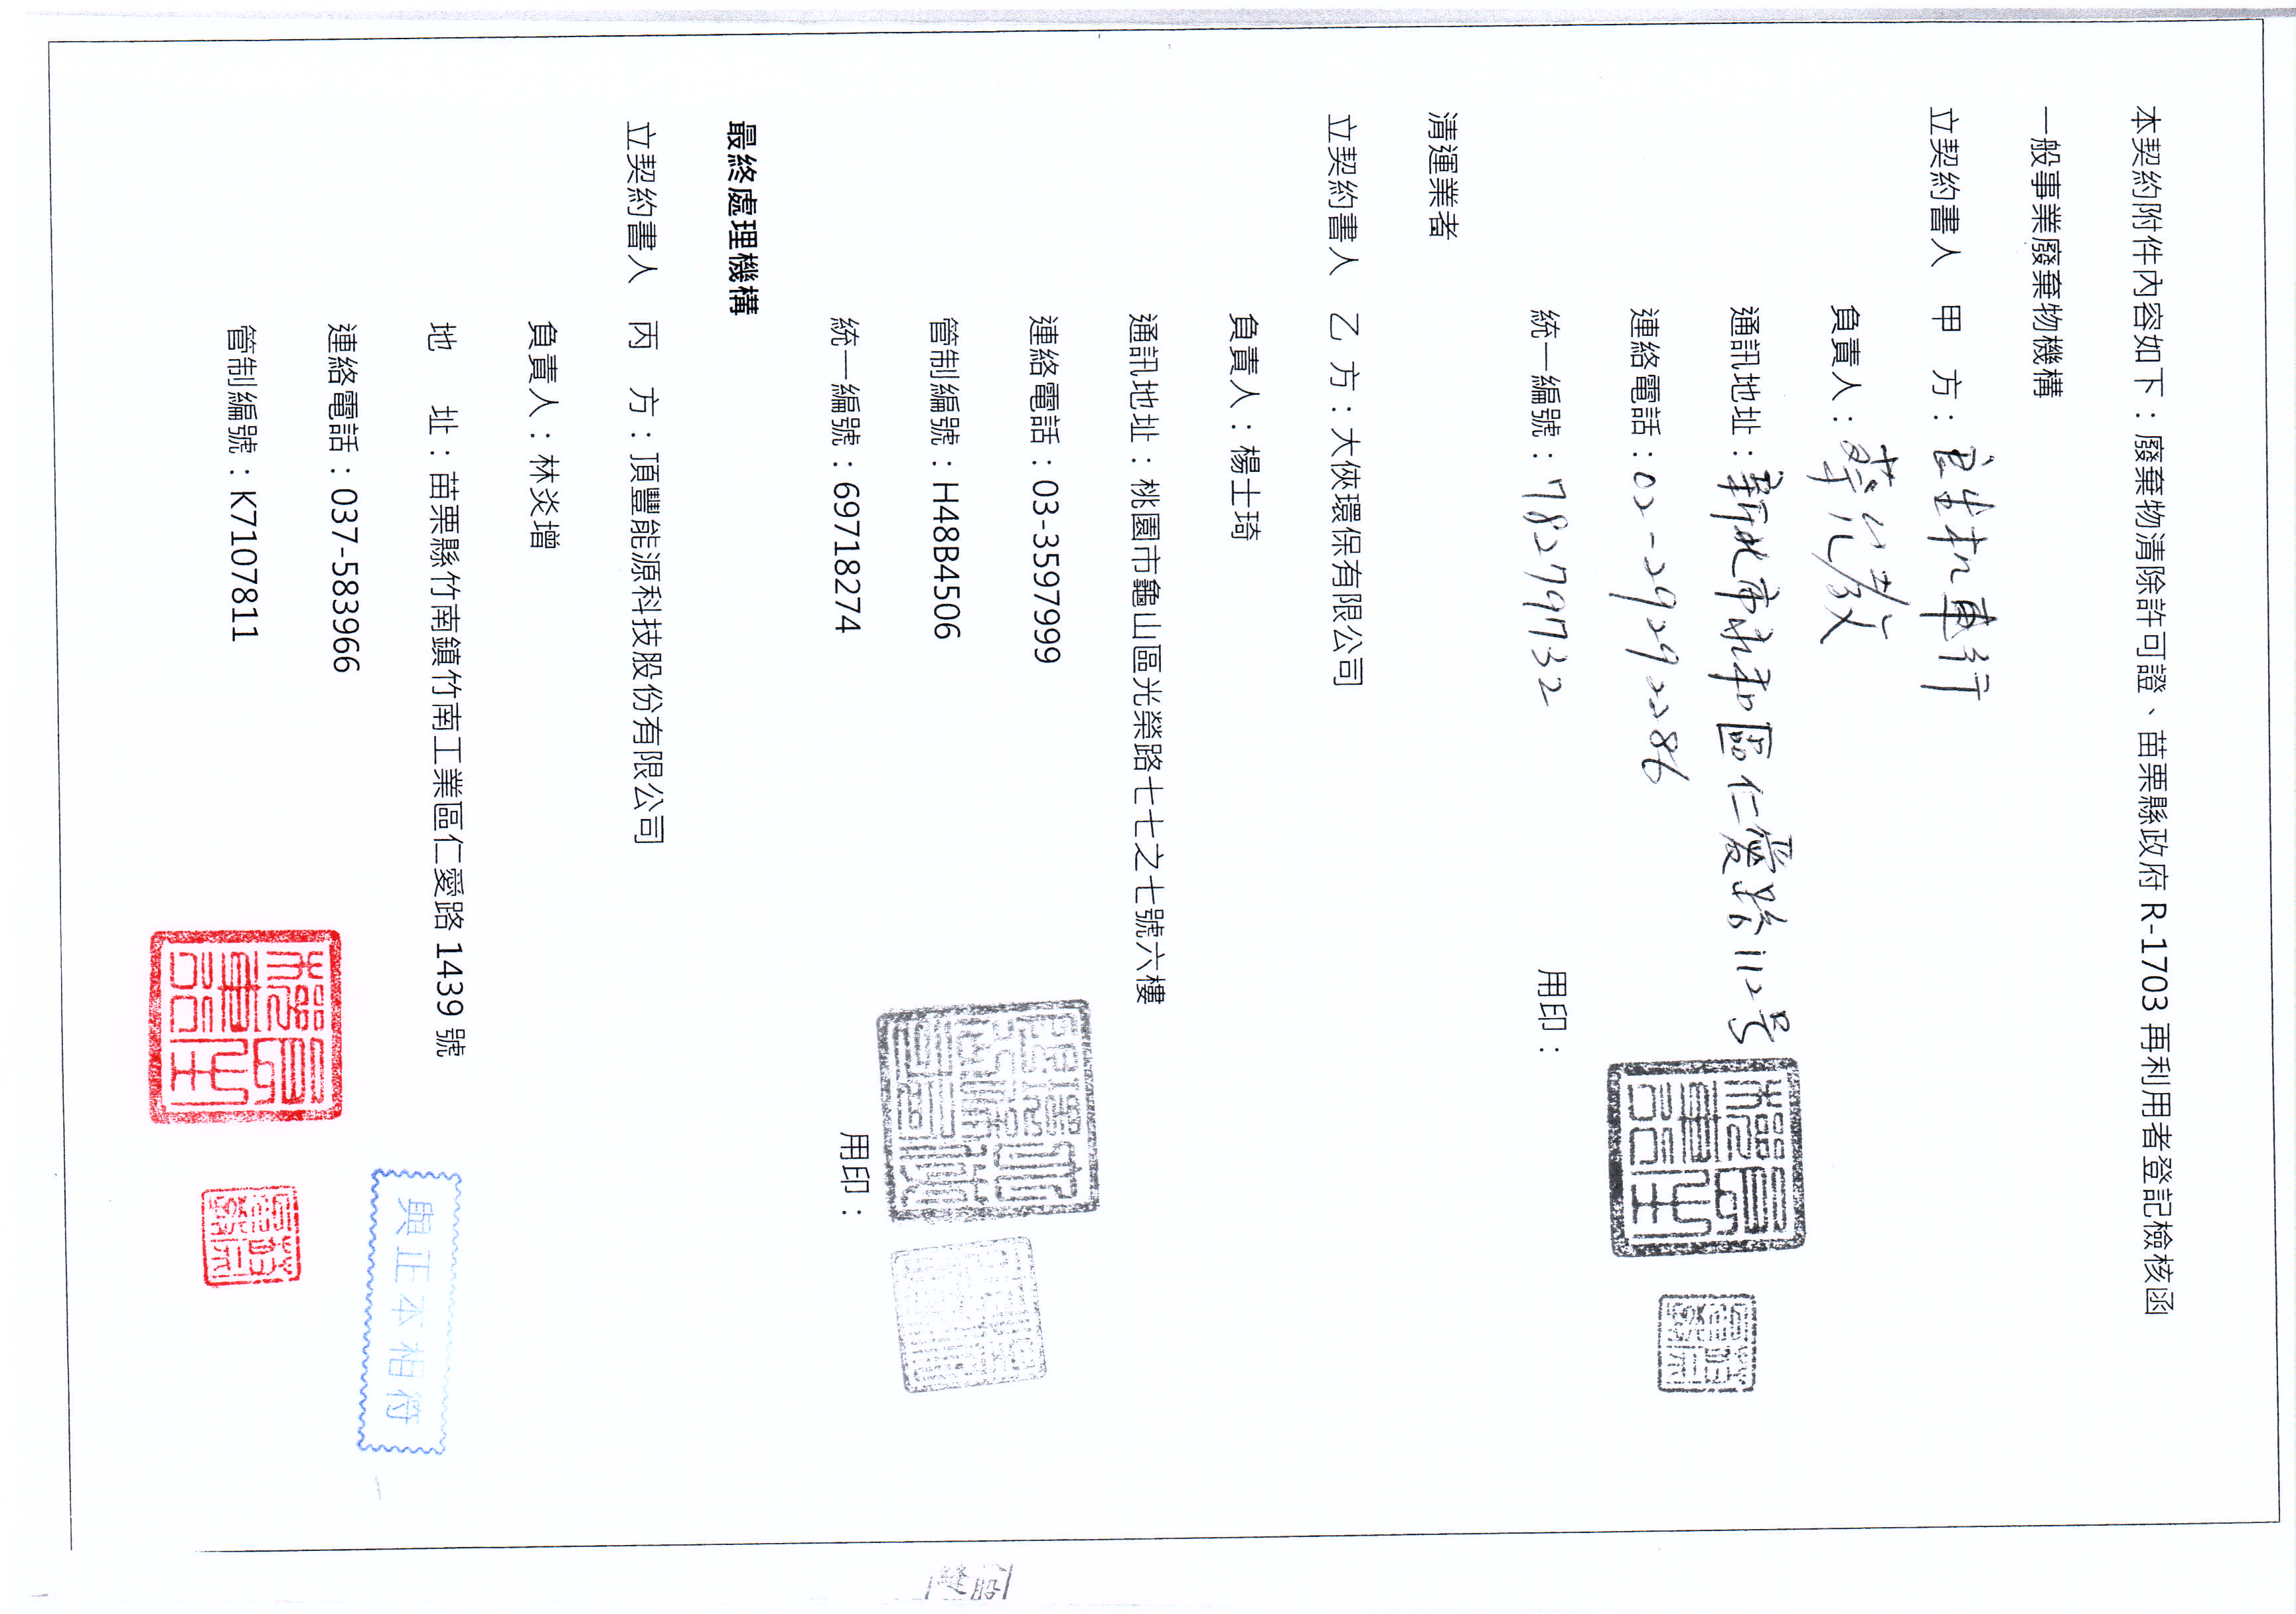 本契約附件內容如下：廢棄物清除許可證、苗栗縣政府 R-1703 再利用者登記檢核函
一般事業廢棄物機構
立契約書人 甲 方：
負責人：
通訊地址：新北市永和區仁愛路112号
連絡電話：02-29292286
統一編號：78279732 用印：
清運業者
立契約書人 乙 方：大俠環保有限公司
負責人：楊士琦
通訊地址：桃園市龜山區光榮路七七之七號六樓
連絡電話：03-3597999
管制編號：H48B4506
統一編號：69718274 用印：
最終處理機構
立契約書人 丙 方：頂豐能源科技股份有限公司
負責人：林炎增
地 址：苗栗縣竹南鎮竹南工業區仁愛路 1439 號
連絡電話：037-583966
管制編號：K7107811
與正本相符